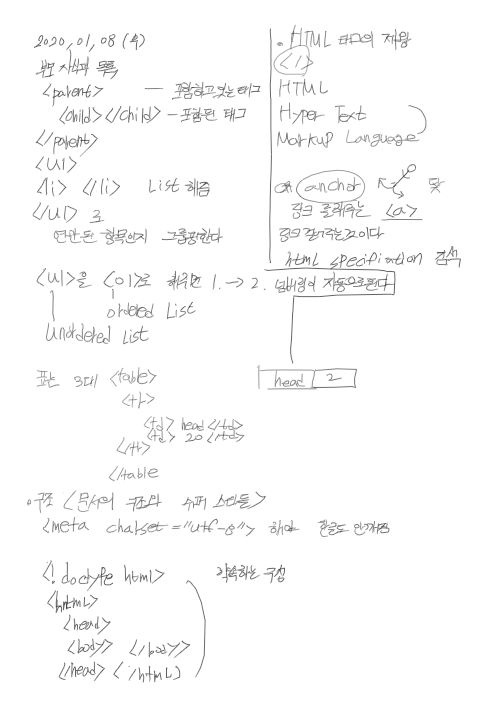 2020, 01, 08 (수)
부모 자식과 목록
<parent> — 포함하고있는 태그
<child></child> – 포함된 태그
</parent>
<ul>
<li> </li> List 해줌
</ul> 로
연관된 항목인지 그룹핑한다
<ul>을 <ol>로 해주면 1. → 2. 넘버링이 자동으로된다
ordered List
Unordered List
head 2
표는 3대 <table>
<tr>
<td> head </td>
<td> 20 </td>
</tr>
</table
구조 <문서의 구조와 슈퍼 스타들>
<meta charset="utf-8"> 해야 한글도 안깨짐
<! doctype html> 약속하는 구성
<html>
<head>
<body> </body>
</head> </html>
. HTML 태그의 제왕
HTML
Hyper Text
Markup Language
anchor 닻
링크 걸어주는것이다
html specification 검색